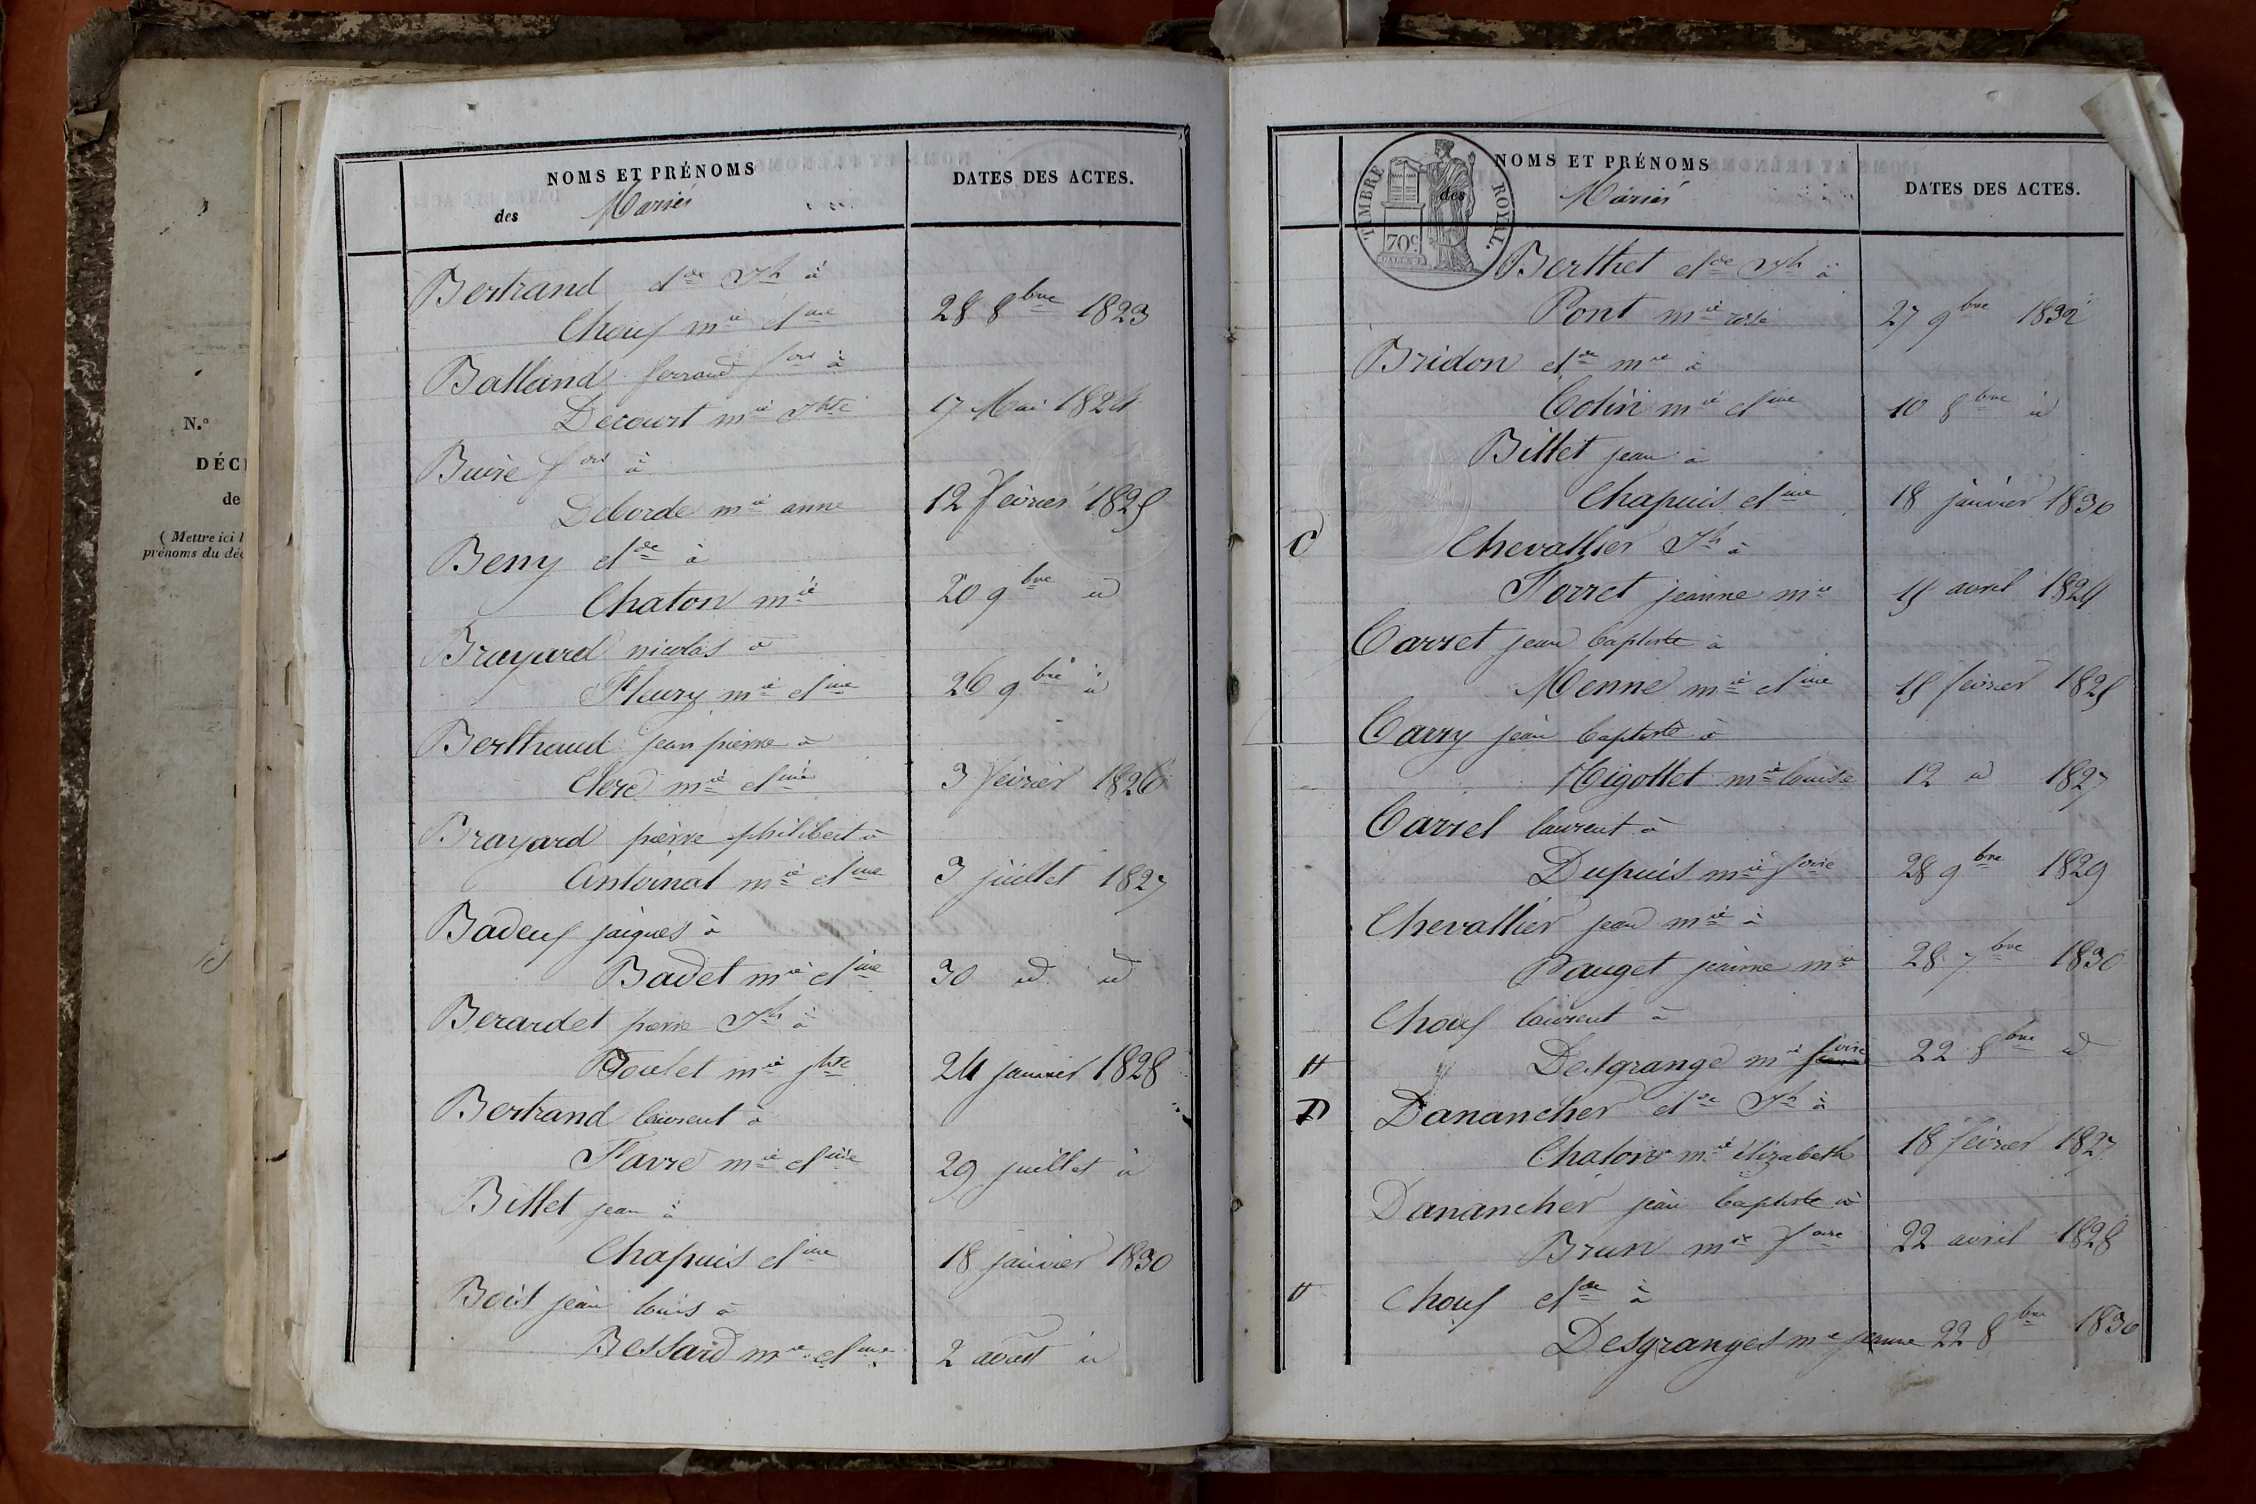 N.º
DÉCE
de
( Mettre ici l
prénoms du déc
NOMS ET PRÉNOMS
des Mariés
DATES DES ACTES.
Bertrand cl^de J^h à
Chouf m^ie cl^ine 28 8^bre 1823
Balland ferrand f^ois à
Decourt m^ie J^hte 17 Mai 1824
Buire f^ois à
Deborde m^ie anne 12 février 1825
Beny cl^de à
Chaton m^ie 20 9^bre id
Brayard nicolas à
Fleury m^ie cl^ine 26 9^bre id
Berthaud jean pierre à
Clerc m^ie cl^ine 3 février 1826
Brayard pierre philibert à
Antoinat m^ie cl^ine 3 juillet 1827
Badeuf jacques à
Badet m^ie cl^ine 30 id id
Berardet pierre J^h à
Poulet m^ie j^hte 24 janvier 1828
Bertrand laurent à
Favre m^ie cl^ine 29 juillet id
Billet jean à
Chapuis cl^ine 18 janvier 1830
Bois jean louis à
Bessard m^ie cl^ine 2 avout id
TIMBRE ROYAL.
70^c
NOMS ET PRÉNOMS
des Mariés
DATES DES ACTES.
Berthet cl^de J^h à
Pont m^ie rose 27 9^bre 1832
Bridon cl^de m^ie à
Colin m^ie cl^ine 10 8^bre id
Billet jean à
Chapuis cl^ine 18 janvier 1830
C Chevallier J^h à
Forret jeanne m^ie 15 avril 1824
Carret jean baptiste à
Menne m^ie cl^ine 15 février 1825
Carry jean baptiste à
Migollet m^ie louise 12 id 1827
Carrel laurent à
Dupuis m^ie f^oise 28 9^bre 1829
Chevallier jean m^ie à
Pauget jeanne m^ie 28 7^bre 1830
Chouf laurent à
Desgrange m^ie f^oise 22 8^bre id
D Danancher cl^de J^h à
Chalon m^ie élizabeth 18 février 1827
Danancher jean baptiste à
Brun m^ie f^oise 22 avril 1828
Chouf cl^de à
Desgranges m^ie jeanne 22 8^bre 1830